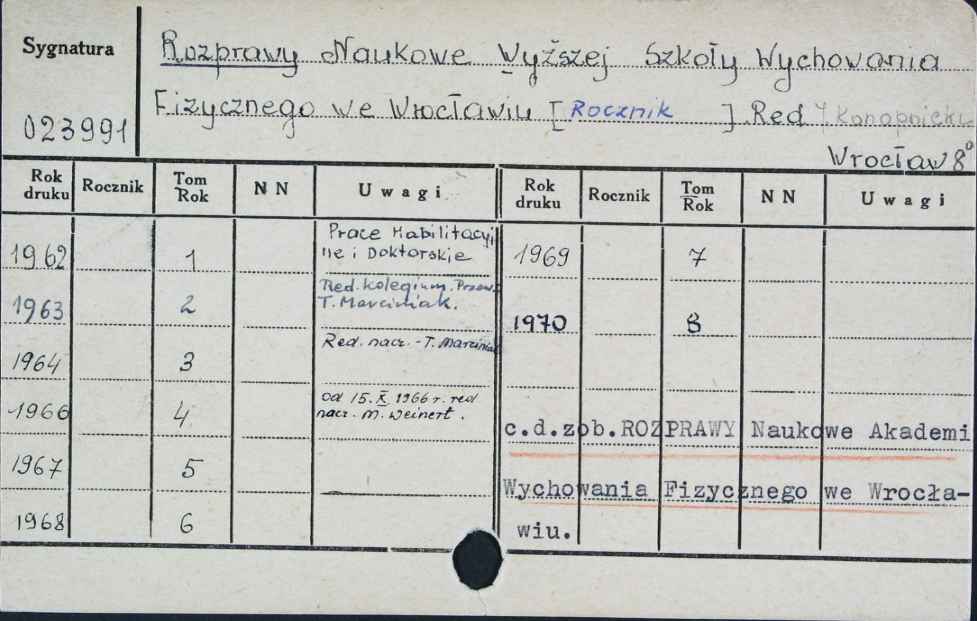 Sygnatura
Rozprawy Naukowe Wyższej Szkoły Wychowania
Fizycznego we Wrocławiu [Rocznik ] Red J Konopnicki
023991
Wrocław 8°
Rok druku Rocznik Tom Rok NN Uwagi Rok druku Rocznik Tom Rok NN Uwagi
1962 1 Prace Habilitacyj
ne i Doktorskie 1969 7
1963 2 Red. kolegium. Przew.
T. Marciniak.
1970 8
1964 3 Red. nacz. - T. Marciniak
1966 4 od 15. X 1966 r. red
nacz. M. Weinert.
c.d.zob.ROZPRAWY Naukowe Akademi
1967 5
Wychowania Fizycznego we Wrocła-
1968 6
wiu.